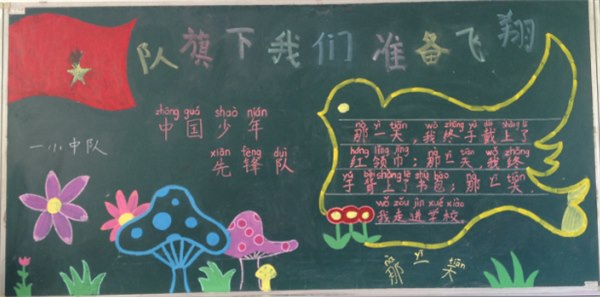 队旗下我们准备飞翔
zhōng guó shào nián
中国少年
xiān fēng duì
先锋队
一小中队
nà yì tiān wǒ zhōng yú dài shàng le
那一天,我终于戴上了
hóng lǐng jīng nà yì tiān wǒ zhōng
红领巾;那一天,我终
yú bēi shàng le shū bāo nà yì tiān
于背上了书包;那一天
wǒ zǒu jìn xué xiào
我走进学校。
nà yì tiān
那一天